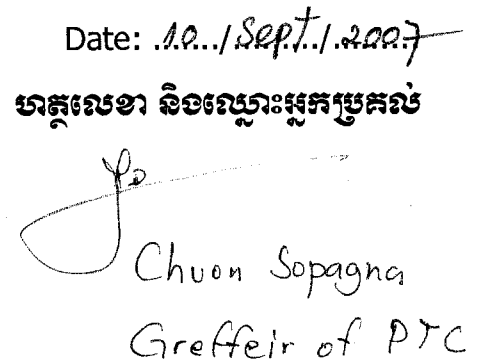 Date: .10.../.Sept.../.2007
ហត្ថលេខា និងឈ្មោះអ្នកប្រគល់
Chuon Sopagna
Greffeir of PTC